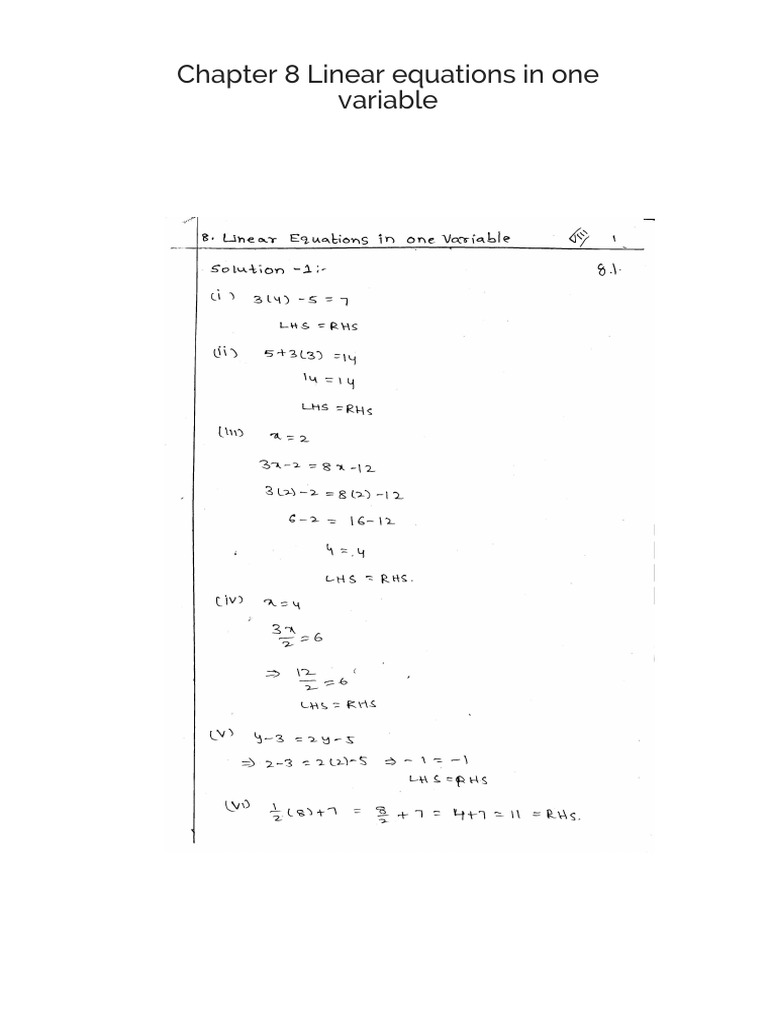 Chapter 8 Linear equations in one
variable
8. Linear Equations in one Variable VIII 1
Solution -1:- 8.1.
(i) 3(4) -5 = 7
LHS = RHS
(ii) 5+3(3) =14
14 = 14
LHS =RHS
(iii) x=2
3x-2 = 8x-12
3(2)-2 = 8(2)-12
6-2 = 16-12
4 = 4
LHS = RHS.
(iv) x=4
3x/2 = 6
⇒ 12/2 = 6
LHS = RHS
(v) y-3 = 2y-5
⇒ 2-3 = 2(2)-5 ⇒ -1 = -1
LHS = RHS
(vi) 1/2 (8)+7 = 8/2 + 7 = 4+7 = 11 = RHS.